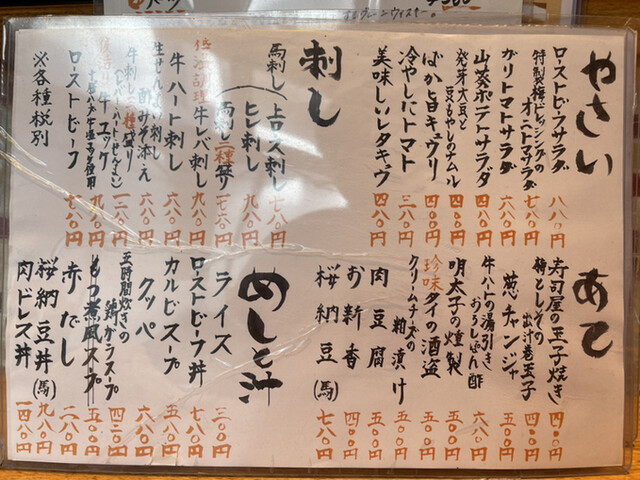 やさい
ローストビーフサラダ 八八〇円
特製梅ドレッシングのオニトマサラダ 七八〇円
ガリトマトサラダ 六八〇円
山葵ポテトサラダ 四八〇円
発芽大豆と豆もやしのナムル 四八〇円
ばか旨キュウリ 四〇〇円
冷やしトマト 三八〇円
美味しいレタキヴ 四八〇円
刺し
馬刺し
上ロース刺し 七八〇円
ヒレ刺し 九八〇円
馬刺し二種盛り
低温調理 牛レバ刺し 九八〇円
牛ハート刺し 六八〇円
生せんまい刺し 酢みそ添え 六八〇円
牛刺し三種盛り
(レバー・ハート・せんまい)
牛ユッケ 九八〇円
ローストビーフ 七八〇円
※各種税別
あて
寿司屋の玉子焼き 四〇〇円
梅としその出汁巻玉子 四〇〇円
葱チャンジャ 五〇〇円
牛ハートの湯引き おろしぽん酢 六八〇円
明太子の燻製 五〇〇円
珍味 タイの酒盗 五〇〇円
クリームチーズの粕漬け 五〇〇円
肉豆腐 五〇〇円
お新香 四〇〇円
桜納豆(馬) 七八〇円
めしと汁
ライス 三〇〇円
ローストビーフ丼 七八〇円
カルビスープ 五八〇円
クッパ 六八〇円
五時間炊きの鶏がらスープ 四二〇円
もつ煮風スープ 五〇〇円
赤だし 二八〇円
桜納豆丼(馬) 九八〇円
肉ドレス丼 一四八〇円